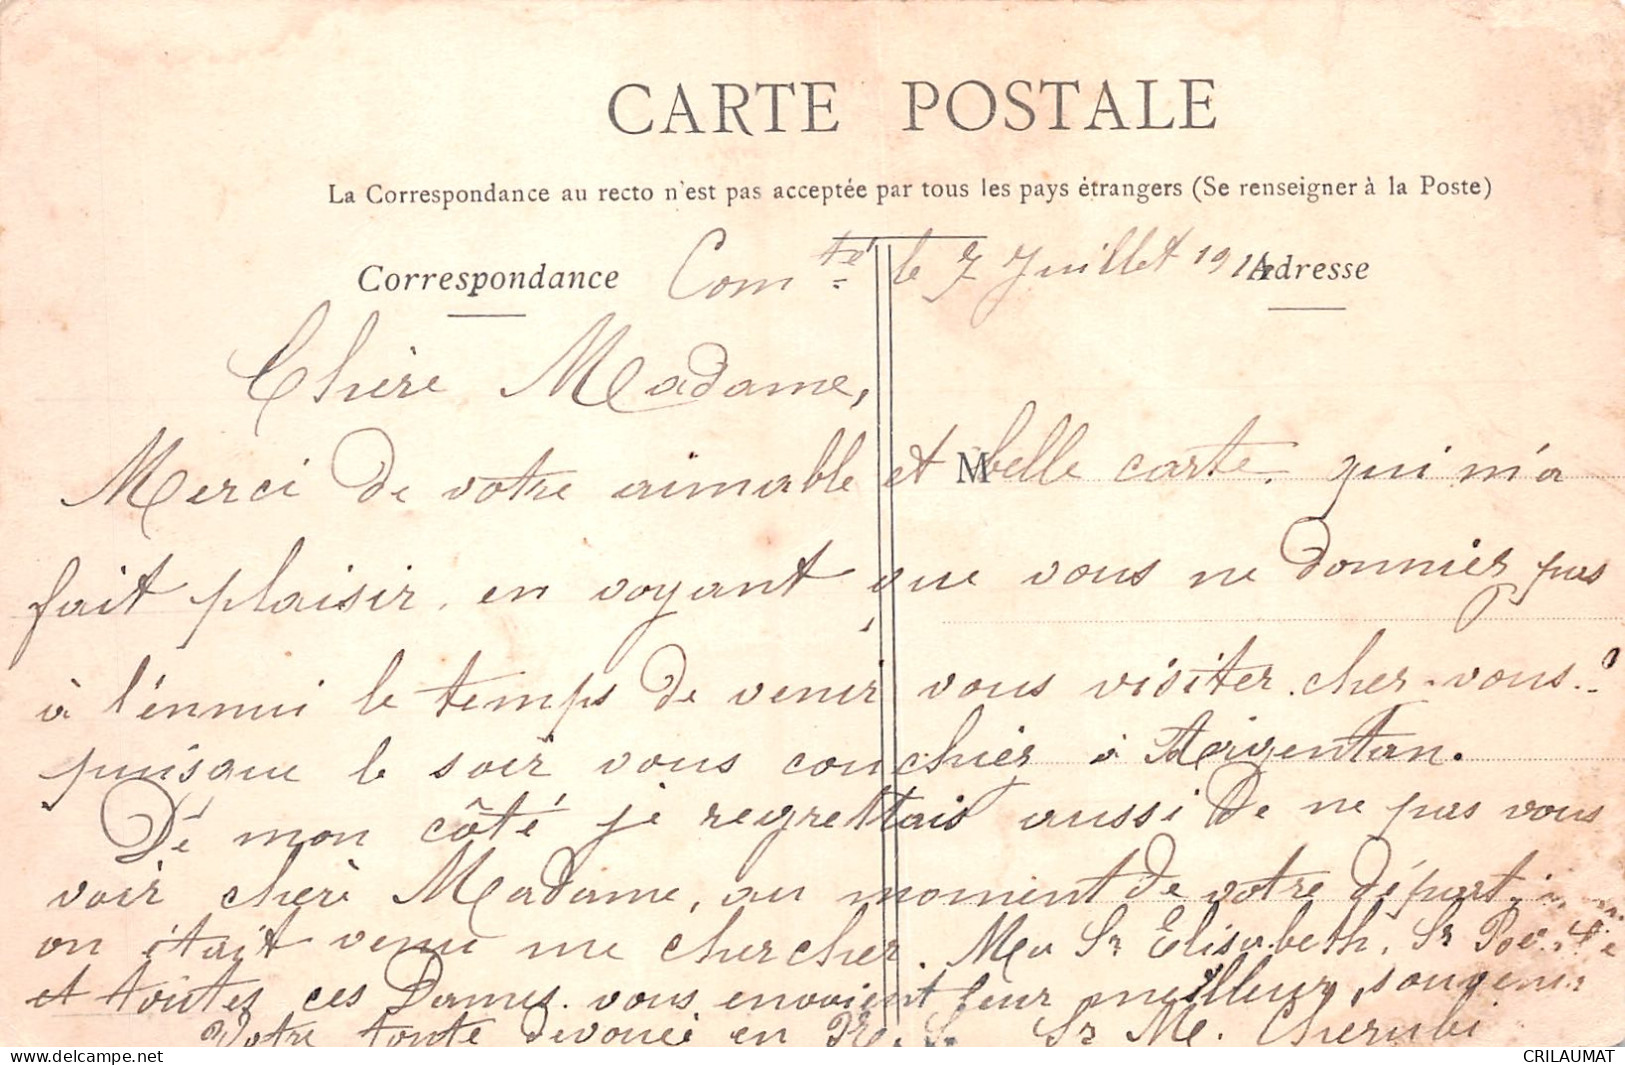 CARTE POSTALE
La Correspondance au recto n'est pas acceptée par tous les pays étrangers (Se renseigner à la Poste)
Correspondance
Com té le 7 Juillet 1914
Adresse
Chère Madame,
Merci de votre aimable et belle carte. qui m'a
M
fait plaisir, en voyant que vous ne donniés pas
à l'énnui le temps de venir vous visiter cher-vous.
puisque le soir vous couchiés à Argentan.
Dé mon côté je regrettais aussi de ne pas vous
voir cherè Madame, au moment de votre départ,
on était venu me chercher. Ma Sr Elisabeth, Sr
et toutes ces Dames vous envoient leur meilleur souvenir
Votre toute dévouée en Sr M. Cherubi
www.delcampe.net
CRILAUMAT